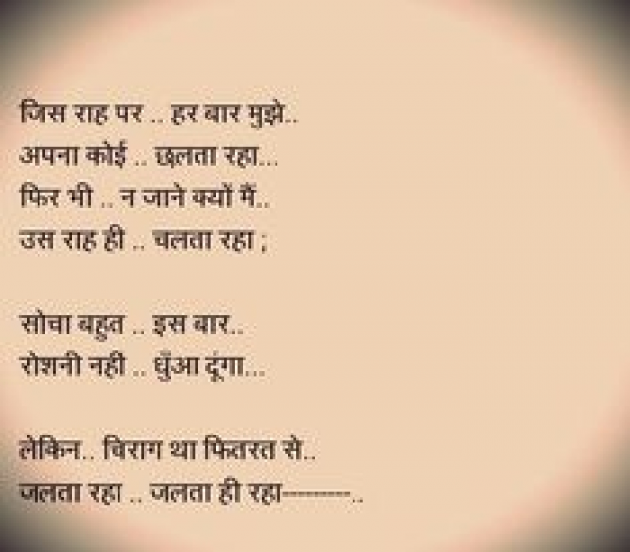 जिस राह पर .. हर बार मुझे..
अपना कोई .. छलता रहा...
फिर भी .. न जाने क्यों मैं..
उस राह ही .. चलता रहा ;
सोचा बहुत .. इस बार..
रोशनी नही .. धुँआ दूंगा...
लेकिन.. चिराग था फितरत से..
जलता रहा .. जलता ही रहा---------..